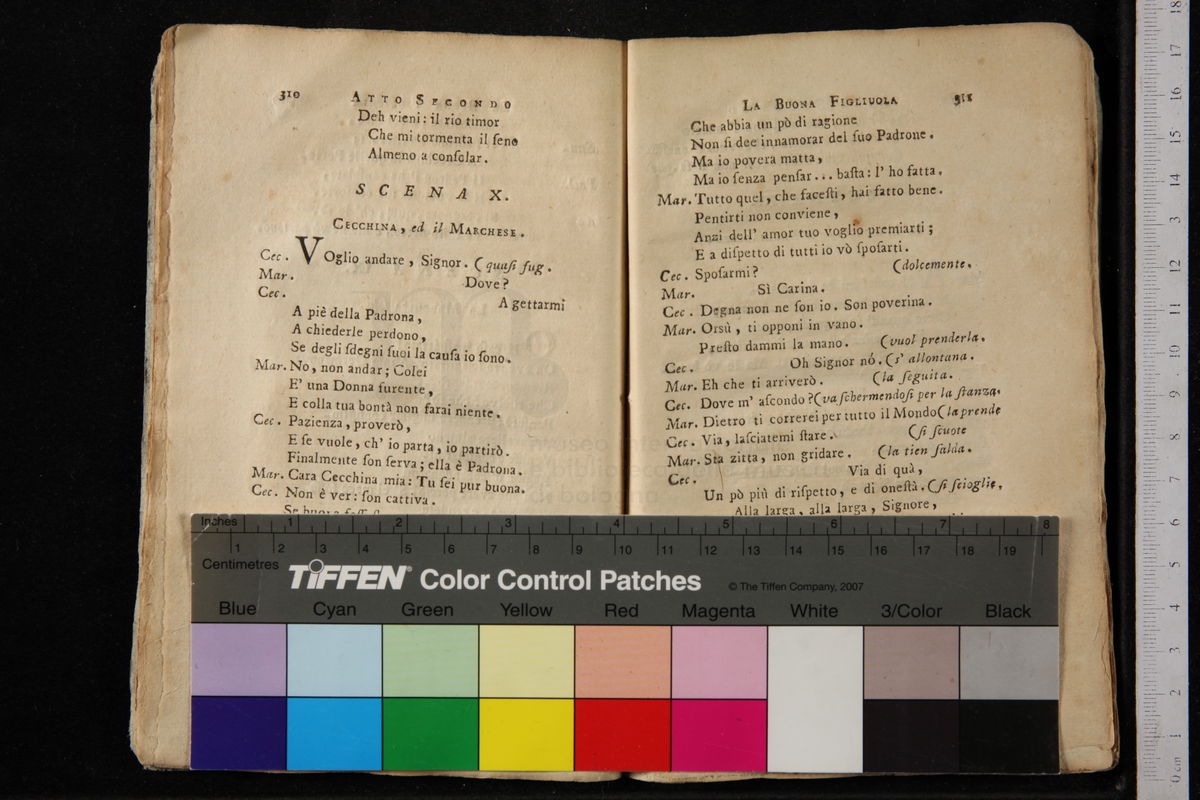 310 ATTO SECONDO
Deh vieni: il rio timor
Che mi tormenta il ſeno
Almeno a conſolar.
SCENA X.
CECCHINA, ed il MARCHESE.
Cec. VOglio andare, Signor. (quaſi fug.
Mar. Dove?
Cec. A gettarmi
A piè della Padrona,
A chiederle perdono,
Se degli ſdegni ſuoi la cauſa io ſono.
Mar. No, non andar; Colei
E' una Donna furente,
E colla tua bontà non farai niente.
Cec. Pazienza, proverò,
E ſe vuole, ch' io parta, io partirò.
Finalmente ſon ſerva; ella è Padrona.
Mar. Cara Cecchina mia: Tu ſei pur buona.
Cec. Non è ver: ſon cattiva.
LA BUONA FIGLIUOLA 311
Che abbia un pò di ragione
Non ſi dee innamorar del ſuo Padrone.
Ma io povera matta,
Ma io ſenza penſar... baſta: l' ho fatta.
Mar. Tutto quel, che faceſti, hai fatto bene.
Pentirti non conviene,
Anzi dell' amor tuo voglio premiarti;
E a diſpetto di tutti io vò ſpoſarti.
Cec. Spoſarmi? (dolcemente.
Mar. Sì Carina.
Cec. Degna non ne ſon io. Son poverina.
Mar. Orsù, ti opponi in vano.
Preſto dammi la mano. (vuol prenderla.
Cec. Oh Signor nó. (s' allontana.
Mar. Eh che ti arriverò. (la ſeguita.
Cec. Dove m' aſcondo? (va ſchermendoſi per la ſtanza.
Mar. Dietro ti correrei per tutto il Mondo (la prende
Cec. Via, laſciatemi ſtare. (ſi ſcuote
Mar. Sta zitta, non gridare. (la tien ſalda.
Cec. Via di quà,
Un pò più di riſpetto, e di oneſtà. (ſi ſcioglie,
Alla larga, alla larga, Signore,
Inches 1 2 3 4 5 6 7 8
1 2 3 4 5 6 7 8 9 10 11 12 13 14 15 16 17 18 19
Centimetres
TIFFEN® Color Control Patches © The Tiffen Company, 2007
Blue Cyan Green Yellow Red Magenta White 3/Color Black
18
17
16
15
14
13
12
11
10
9
8
7
6
5
4
3
2
1
0 cm